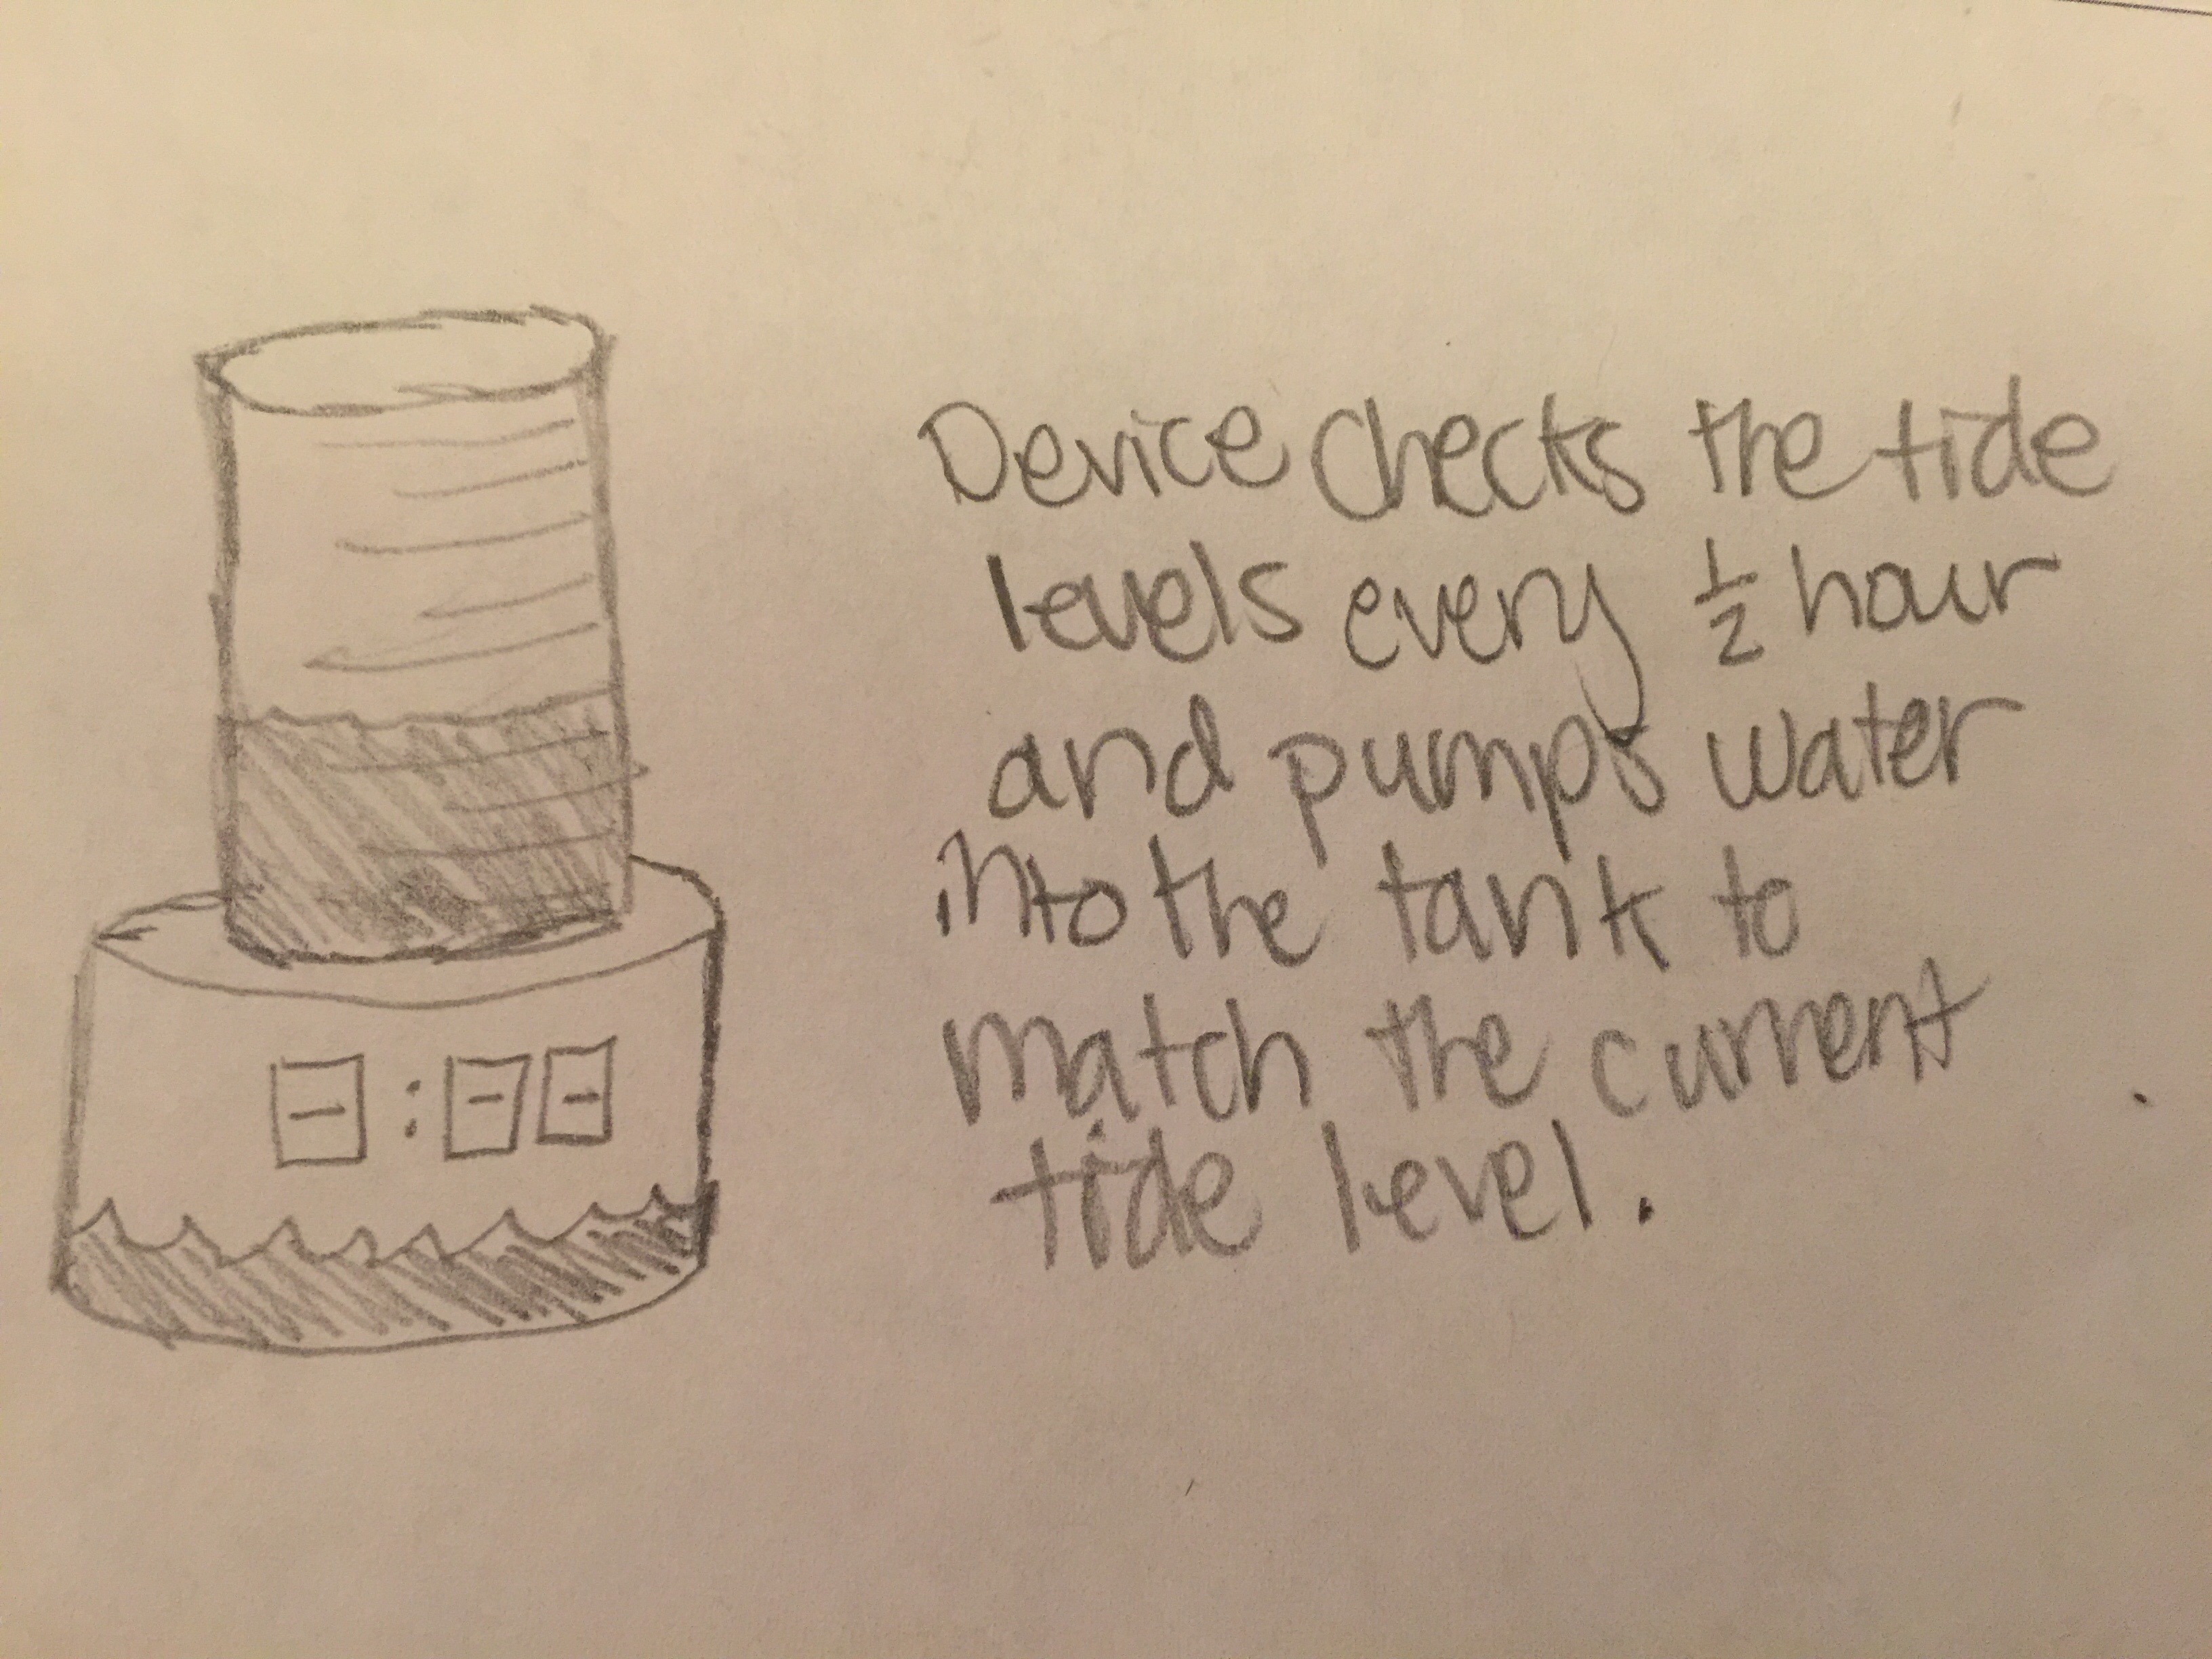 Device checks the tide
levels every 1/2 hour
and pumps water
into the tank to
match the current
tide level.